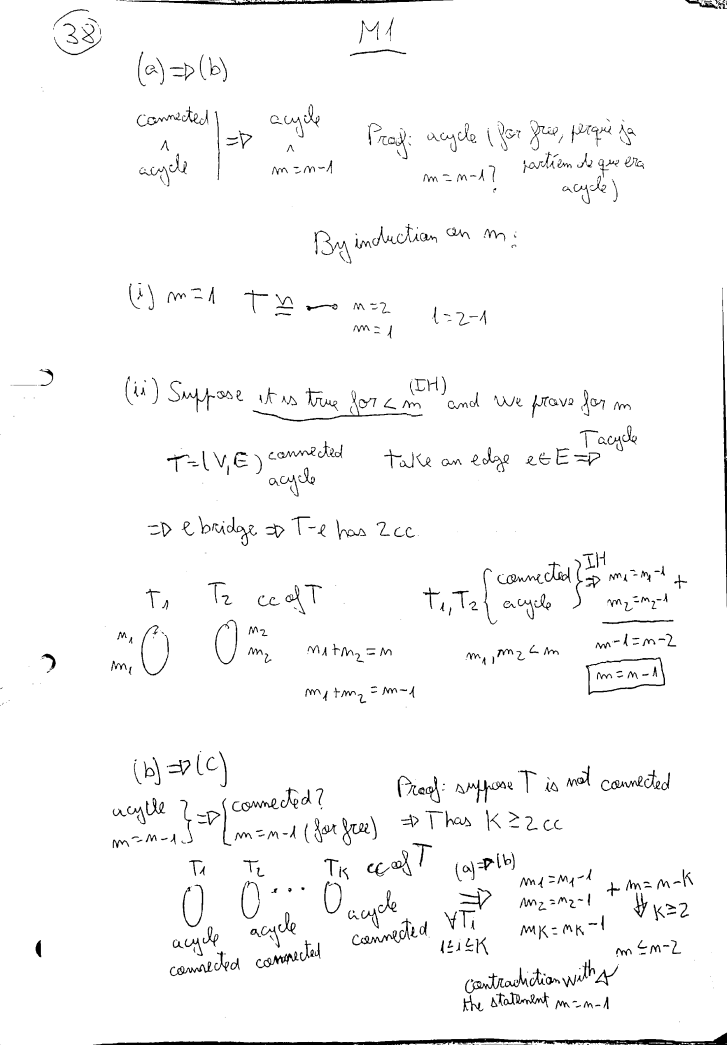 38
M1
(a) ⇒ (b)
connected ∧ acycle ⇒ acycle ∧ m=n-1
Proof: acycle (for free, perquè ja partíem de que era acycle)
m=n-1?
By induction on m:
(i) m=1 T ≅ n=2 m=1 1=2-1
(ii) Suppose it is true for < m (IH) and we prove for m
T=(V,E) connected acycle take an edge e∈E ⇒ T acycle
⇒ e bridge ⇒ T-e has 2 cc
T1 T2 cc of T
n1 m1 n2 m2
n1+n2=n
m1+m2=m-1
T1,T2 { connected acycle } IH ⇒ m1=n1-1 + m2=n2-1
m1,m2<m
m-1=n-2
m=n-1
(b) ⇒ (c)
acycle m=n-1 } ⇒ { connected? m=n-1 (for free)
Proof: suppose T is not connected
⇒ T has K≥2 cc
T1 T2 ... TK cc of T
acycle connected acycle connected acycle connected
(a)⇒(b) ⇒ ∀Ti 1≤i≤K
m1=n1-1
m2=n2-1
mK=nK-1
+ m=n-K
⇓ K≥2
m≤n-2
Contradiction with the statement m=n-1